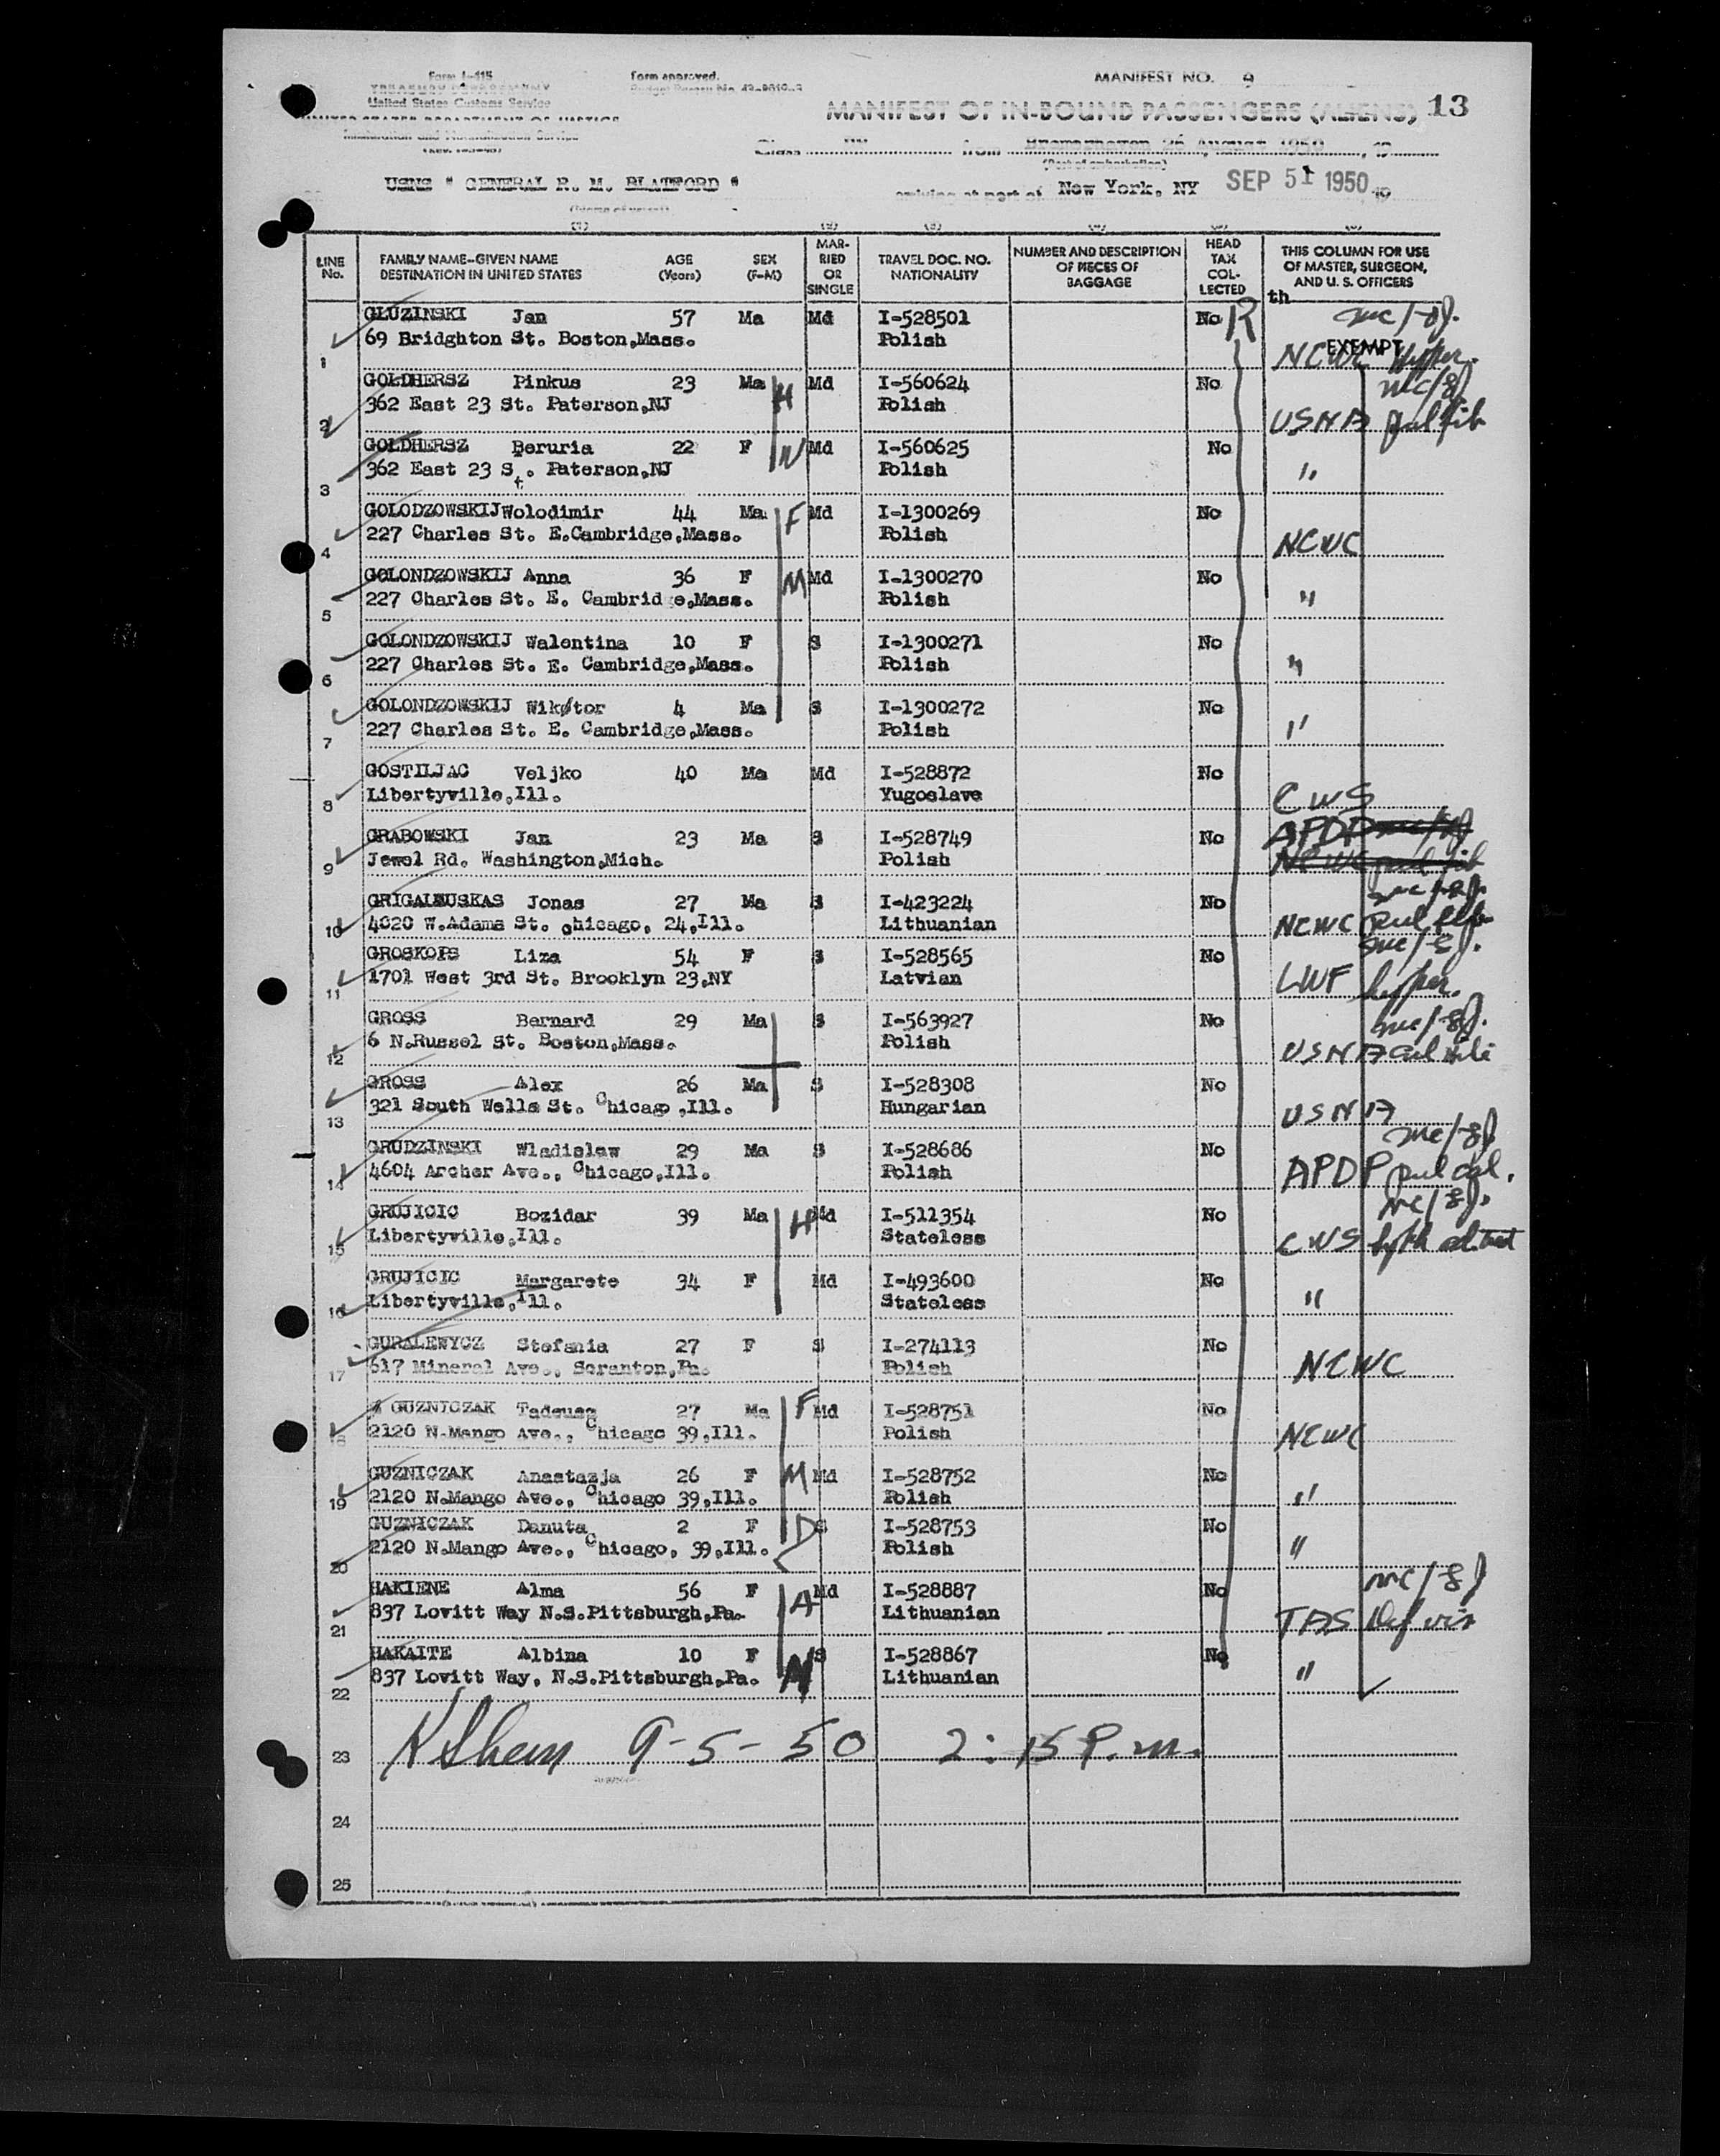 Form I-415
TREASURY DEPARTMENT
United States Customs Service
UNITED STATES DEPARTMENT OF JUSTICE
Immigration and Naturalization Service
Form approved.
MANIFEST NO. 9
MANIFEST OF IN-BOUND PASSENGERS (ALIENS) 13
Class from Bremerhaven 26 August 1950, 19
(Port of embarkation)
USNS " GENERAL R. M. BLATFORD "
arriving at port of New York, NY SEP 51 1950, 19
(Name of vessel)
(1) (2) (3) (4) (5) (6)
LINE No. FAMILY NAME-GIVEN NAME DESTINATION IN UNITED STATES AGE (Years) SEX (F-M) MARRIED OR SINGLE TRAVEL DOC. NO. NATIONALITY NUMBER AND DESCRIPTION OF PIECES OF BAGGAGE HEAD TAX COLLECTED THIS COLUMN FOR USE OF MASTER, SURGEON, AND U. S. OFFICERS
th
GLUZINSKI Jan 57 Ma Md I-528501 No R mc/8J.
1 69 Bridghton St. Boston,Mass. Polish EXEMPT NCWC Hyper.
GOLDHERSZ Pinkus 23 Ma H Md I-560624 No mc/8J
2 362 East 23 St. Paterson,NJ Polish USNA pul fib
GOLDHERSZ Beruria 22 F W Md I-560625 No
3 362 East 23 St. Paterson,NJ Polish "
GOLODZOWSKIJ Wolodimir 44 Ma F Md I-1300269 No
4 227 Charles St. E.Cambridge,Mass. Polish NCWC
GOLONDZOWSKIJ Anna 36 F M Md I-1300270 No
5 227 Charles St. E. Cambridge,Mass. Polish "
GOLONDZOWSKIJ Walentina 10 F S I-1300271 No
6 227 Charles St. E. Cambridge,Mass. Polish "
GOLONDZOWSKIJ Wiktor 4 Ma S I-1300272 No
7 227 Charles St. E. Cambridge,Mass. Polish "
GOSTILJAC Veljko 40 Ma Md I-528872 No
8 Libertyville,Ill. Yugoslave CWS
GRABOWSKI Jan 23 Ma S I-528749 No APDP mc/8J
9 Jewel Rd. Washington,Mich. Polish NCWC pul fib
GRIGALAUSKAS Jonas 27 Ma S I-423224 No mc/8J.
10 4020 W.Adams St. Chicago, 24,Ill. Lithuanian NCWC Pul
GROSKOPS Liza 54 F S I-528565 No mc/8J.
11 1701 West 3rd St. Brooklyn 23,NY Latvian LWF hyper.
GROSS Bernard 29 Ma S I-563927 No mc/8J.
12 6 N.Russel St. Boston,Mass. Polish USNA
GROSS Alex 26 Ma S I-528308 No
13 321 South Wells St. Chicago,Ill. Hungarian USNA
GRUDZINSKI Wladislaw 29 Ma S I-528686 No mc/8J
14 4604 Archer Ave., Chicago,Ill. Polish APDP pul cal.
GRUJICIC Bozidar 39 Ma H Md I-511354 No mc/8J.
15 Libertyville,Ill. Stateless CWS
GRUJICIC Margarete 34 F Md I-493600 No
16 Libertyville,Ill. Stateless "
GURALEWYCZ Stefania 27 F S I-274113 No
17 617 Mineral Ave., Scranton,Pa. Polish NCWC
GUZNICZAK Tadeusz 27 Ma F Md I-528751 No
18 2120 N.Mango Ave., Chicago 39,Ill. Polish NCWC
GUZNICZAK Anastazja 26 F M Md I-528752 No
19 2120 N.Mango Ave., Chicago 39,Ill. Polish "
GUZNICZAK Danuta 2 F D S I-528753 No
20 2120 N.Mango Ave., Chicago, 39,Ill. Polish "
HAKIENE Alma 56 F A Md I-528887 No mc/8J
21 837 Lovitt Way N.S.Pittsburgh,Pa. Lithuanian TAS Def vis
HAKAITE Albina 10 F N S I-528867 No
22 837 Lovitt Way, N.S.Pittsburgh,Pa. Lithuanian "
23 9-5-50 2:15 P.m.
24
25